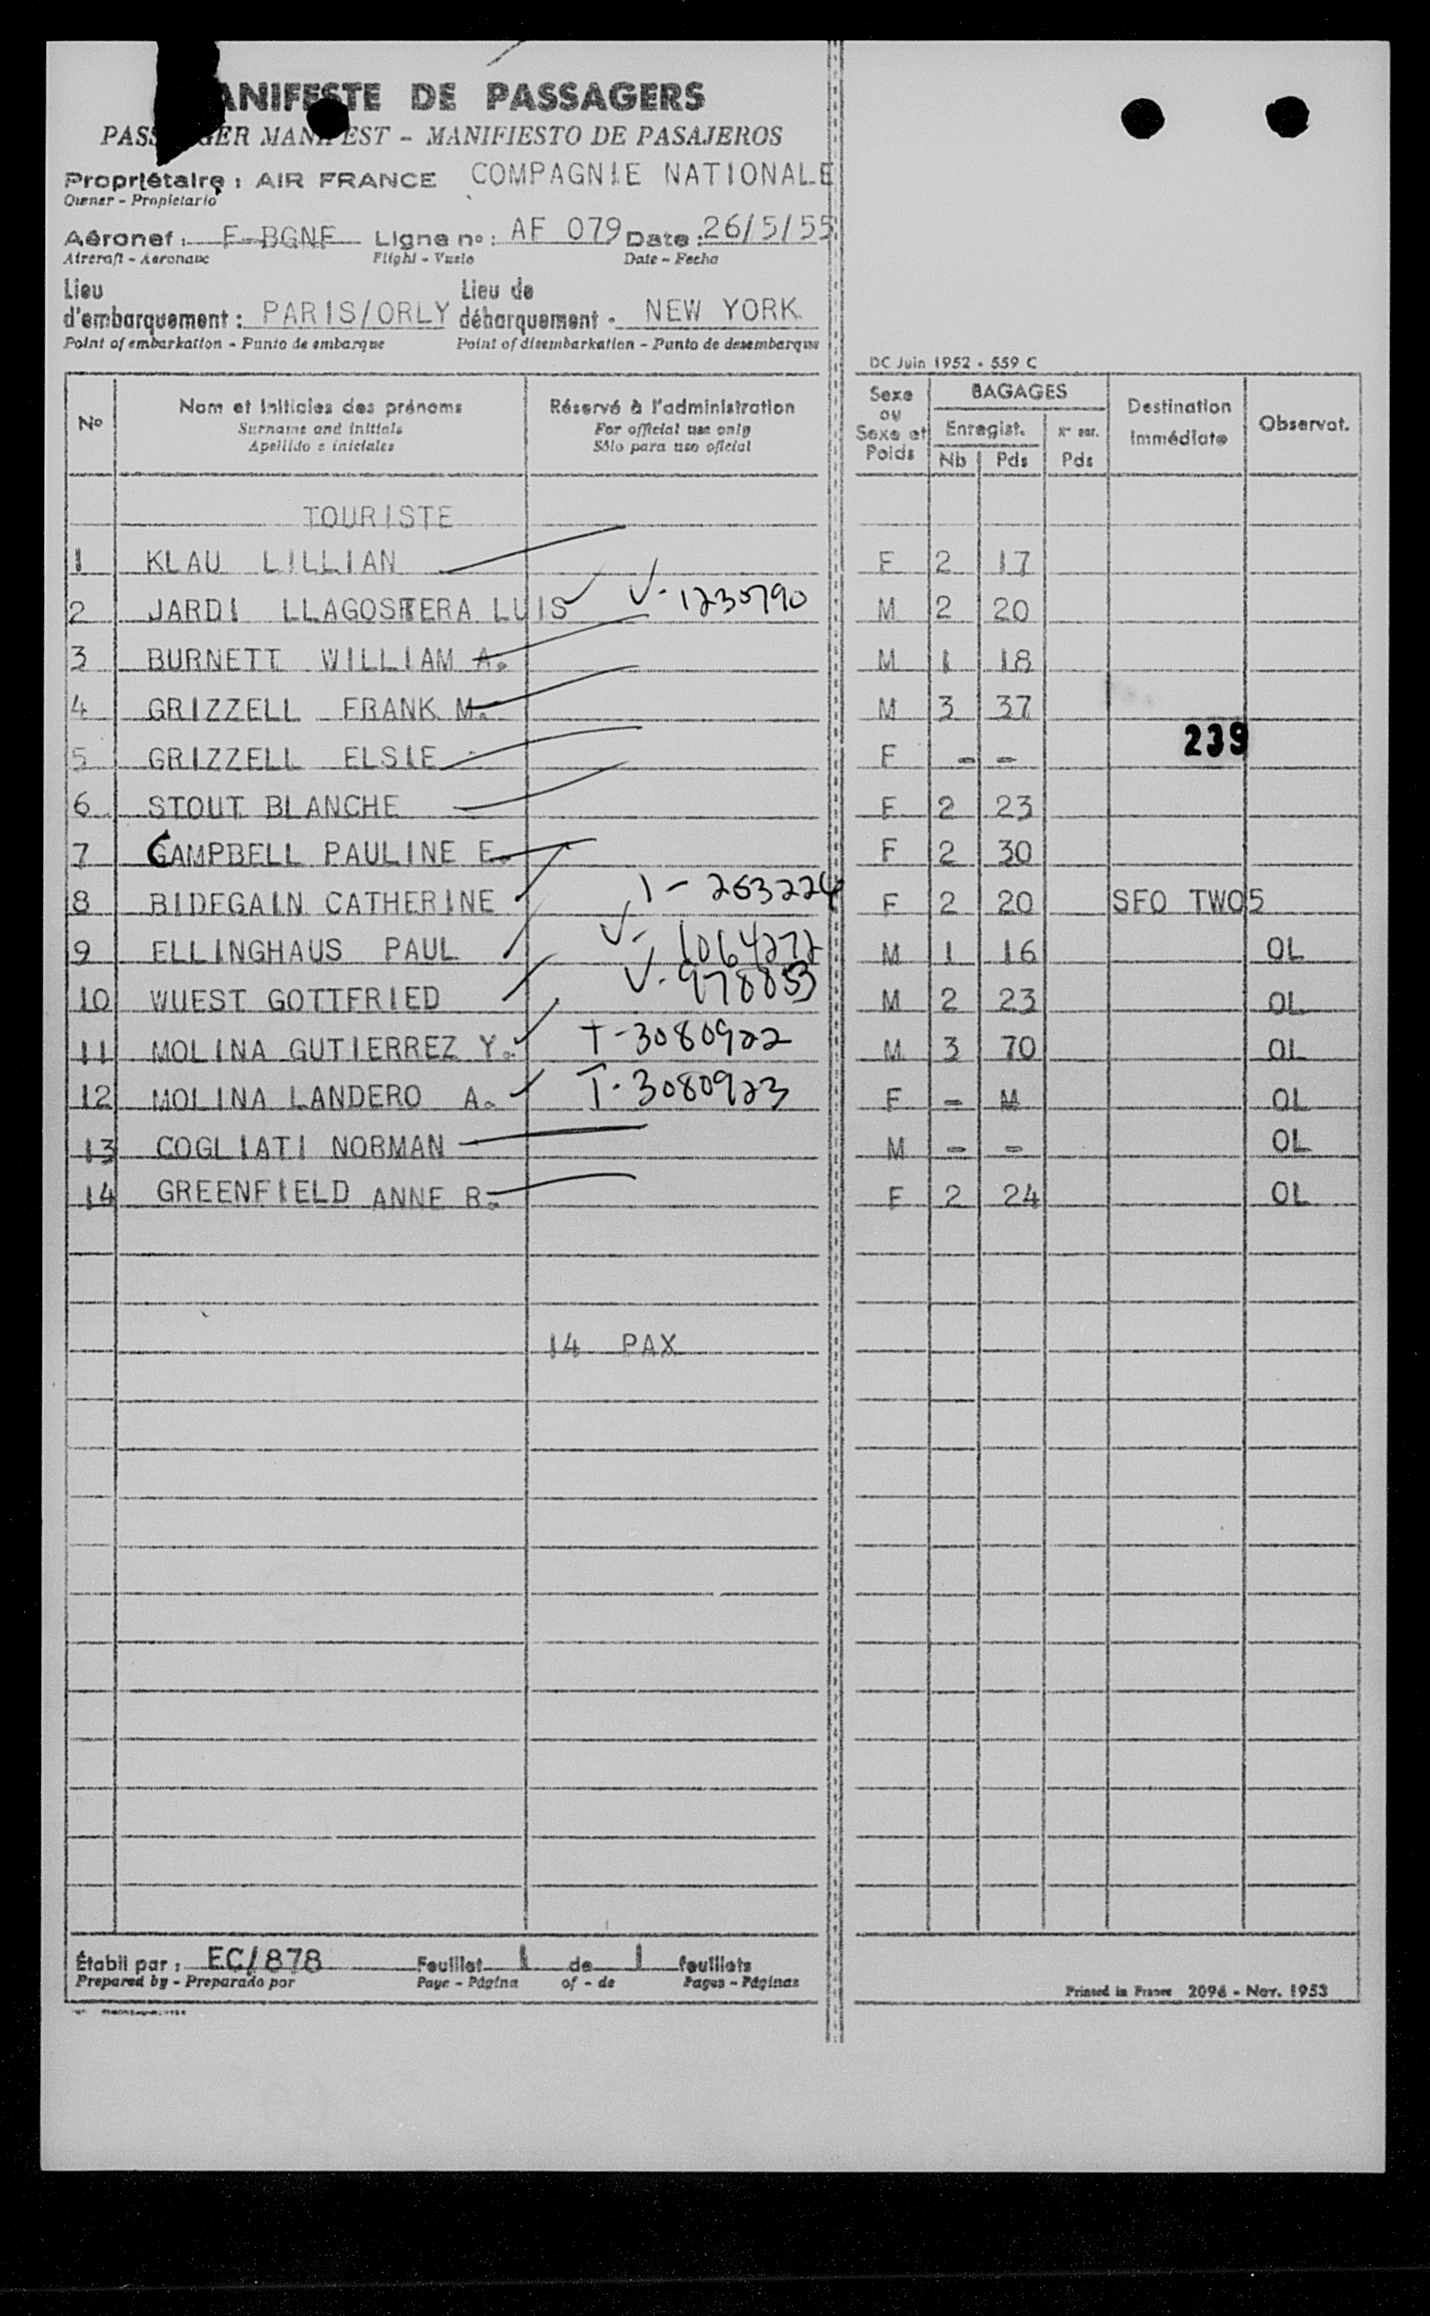 MANIFESTE DE PASSAGERS
PASSENGER MANIFEST - MANIFIESTO DE PASAJEROS
Propriétaire : AIR FRANCE COMPAGNIE NATIONALE
Owner - Propietario
Aéronef : F-BGNF Ligne no : AF 079 Date : 26/5/55
Aircraft - Aeronave Flight - Vuelo Date - Fecha
Lieu d'embarquement : PARIS/ORLY Lieu de débarquement - NEW YORK
Point of embarkation - Punto de embarque Point of disembarkation - Punto de desembarque
DC Juin 1952 - 559 C
No Nom et initiales des prénoms Réservé à l'administration Sexe ou Sexe et Poids BAGAGES Destination immédiate Observat.
Surname and initials For official use only Enregist.
Apellido e iniciales Sólo para uso oficial Nb Pds Pds
TOURISTE
1 KLAU LILLIAN F 2 17
2 JARDI LLAGOSTERA LUIS V-1230790 M 2 20
3 BURNETT WILLIAM A. M 1 18
4 GRIZZELL FRANK M. M 3 37
239
5 GRIZZELL ELSIE F - -
6 STOUT BLANCHE F 2 23
7 CAMPBELL PAULINE E. F 2 30
8 BIDEGAIN CATHERINE 1-263224 F 2 20 SFO TWO5
9 ELLINGHAUS PAUL V-1064272 M 1 16 OL
10 WUEST GOTTFRIED V-978853 M 2 23 OL
11 MOLINA GUTIERREZ Y. T-3080922 M 3 70 OL
12 MOLINA LANDERO A. T-3080923 F - M OL
13 COGLIATI NORMAN M - - OL
14 GREENFIELD ANNE R. F 2 24 OL
14 PAX
Établi par : EC/878 Feuillet 1 de 1 feuillets
Prepared by - Preparado por Page - Página of - de Pages - Páginas
Printed in France 2096 - Nov. 1953